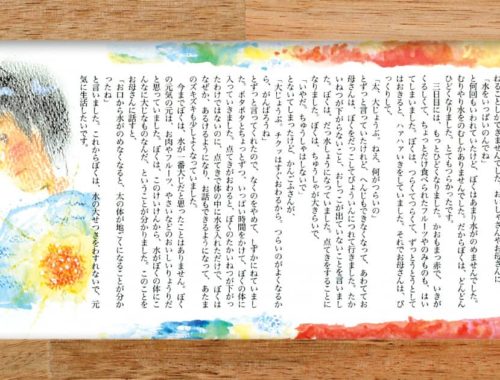 ねることしかできませんでした。お母さんやお母さんに
「水をいっぱいのんでね」
と何回もいわれていたけど、ぼくはあまり水がのめませんでした。
むりやり水をのむしかありませんでした。だからぼくは、どんどん
三日目には、もっとひどくなりました。かおもまっ赤で、いきが
くるしくて、ちょっとだけ食べられたフルーツやのみものも、はい
てしまいました。ぼくは、つらくてつらくて、ずっとうとうとして
はおきると、ハァハァいきをしていました。それでお母さんは、び
っくりして、
「太、大じょうぶ。ねえ、何がつらいの」
とずっと言っていたけれど、ぼくがへんじもできなくなって、あわててお
母さんは、ぼくをだっこしてびょういんにつれて行きました。たか
いねつが下がらないこと、おしっこが出ていないことを言いまし
た。ぼくは、だっ水しょうになっていました。点てきをすることに
なりました。ぼくは、ちゅうしゃが大きらいで、
「いやだ。ちゅうしゃはしないで」
とないてしまったけど、かんごふさんが、
「大じょうぶ。チクッはすぐおわるから。つらいのがよくなるか
ら、がんばろうね」
とずっと言ってくれたので、なくのをやめて、しずかにねていまし
た。ポタポタとちょっとずつ、いっぱい時間をかけて、ぼくの体に
入っていきました。点てきがおわると、ぼくのたかいねつが下がっ
たわけではないのに、点てきで体の中に水を入れただけで、ぼくは
なぜか、あるけるようになり、お話もできるようになって、あたま
のズキズキも少しよくなっていました。
今までぼくは、水が一番大じだと思ったことはありません。ぼく
の元気の元は、お肉やフルーツ、やさいなどのおいしいりょうりだ
と思っていました。ぼくは、このけいけんから、水がぼくの体にこ
んなに大じなものなんだ、ということが分かりました。このことを
お母さんに話すと、
「お口から水がのめなくなると、太の体が地ごくになることが分か
ったね」
と言いました。これからぼくは、水の大せつさをわすれないで、元
気に生活したいです。